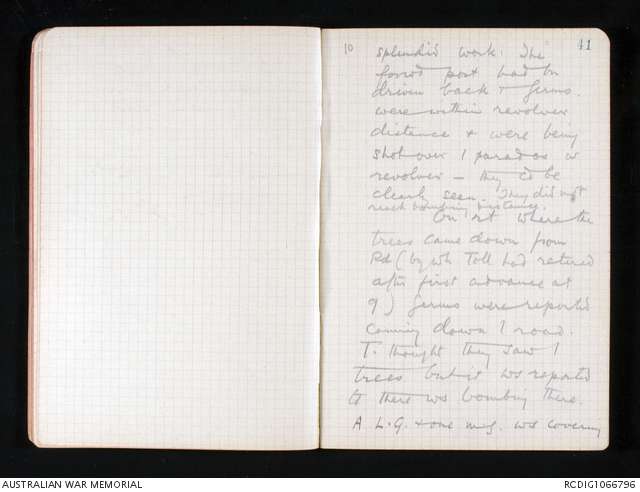 10
41
splendid work. The
forwd post had bn
driven back & Germs.
were within revolver
distance & were being
shot over / parados w
revolver – they cd be
clearly seen. They did not
reach bombing distance.
On rt where the
trees came down from
Rd (by wh Toll had retired
after first advance at
9) Germs were reported
coming down / road.
T. thought they saw /
trees but it ws reported
tt there ws bombing there.
A L.G. & one m.g. ws covering
AUSTRALIAN WAR MEMORIAL
RCDIG1066796